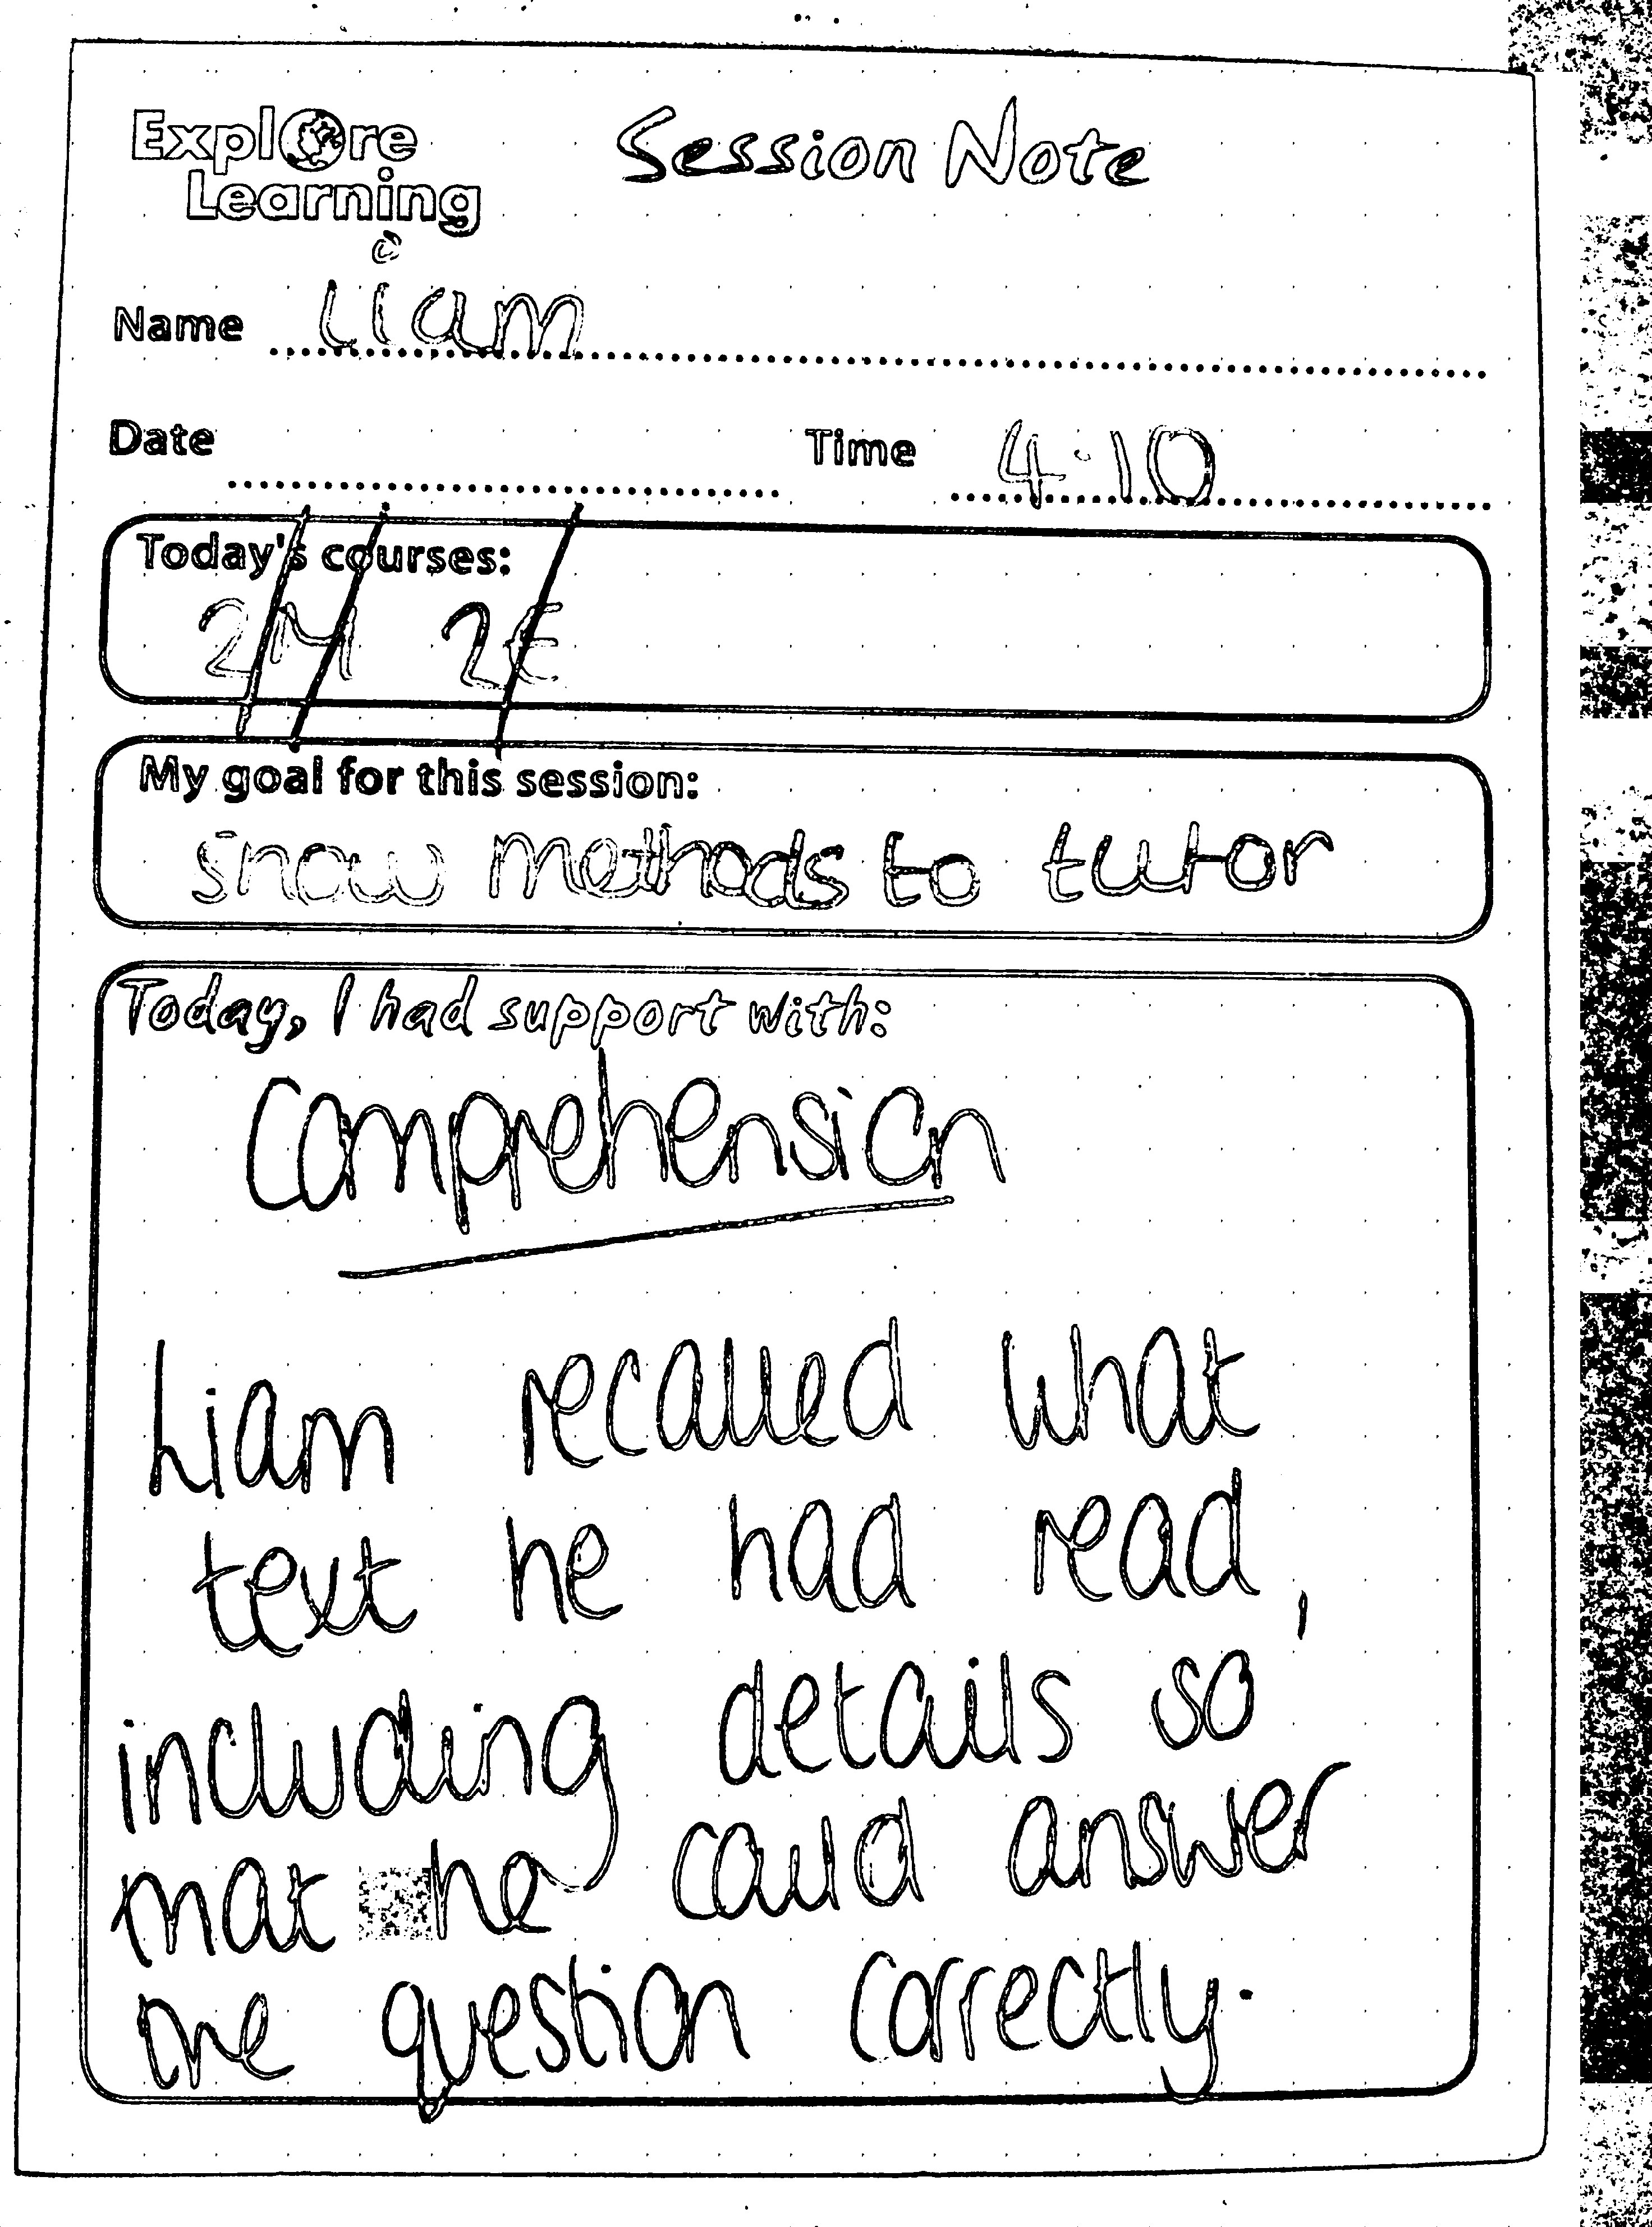 Explore Learning
Session Note
Name Liam
Date
Time 4.10
Today's courses:
2M 2E
My goal for this session:
show methods to tutor
Today, I had support with:
Comprehension
Liam recalled what
text he had read,
including details so
that he could answer
the question correctly.